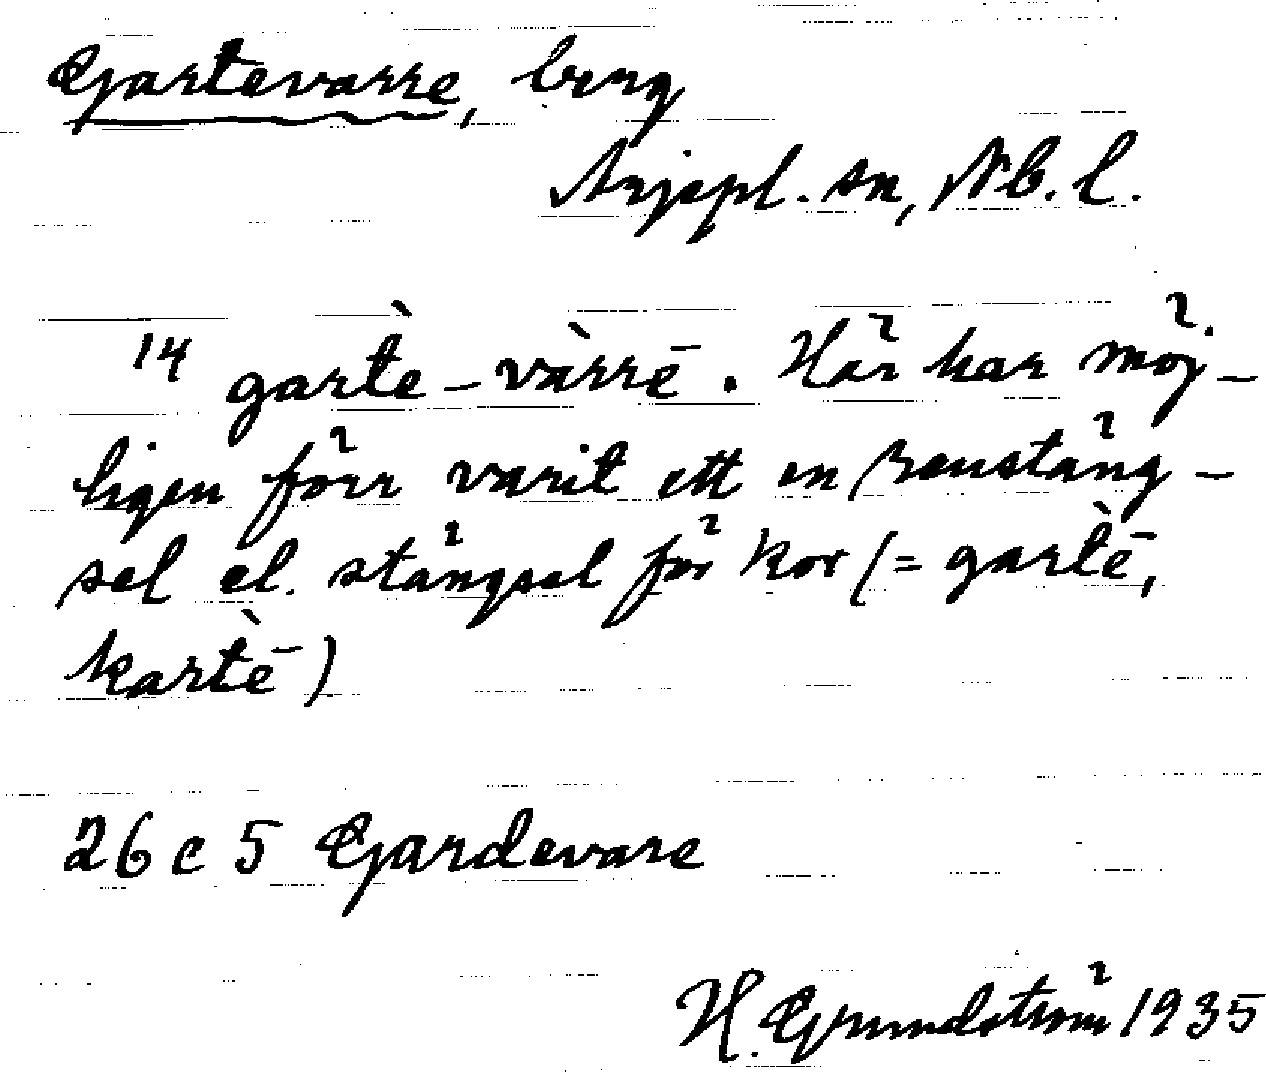 Gartevarre, berg
Arjepl. sn, Nb. l.
14 gartè-vàrrē. Här har möj-
ligen förr varit ett en renstäng-
sel el. stängsel för kor (= gartḕ,
kartḕ)
26 c 5 Gardevare
H. Grundström 1935